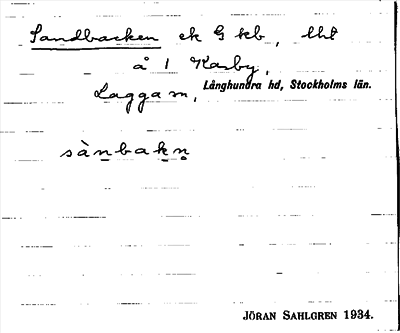 Sandbacken ek G kb, lht
å 1 Karby,
Lagga sn, Långhundra hd, Stockholms län.
sànbakn
JÖRAN SAHLGREN 1934.